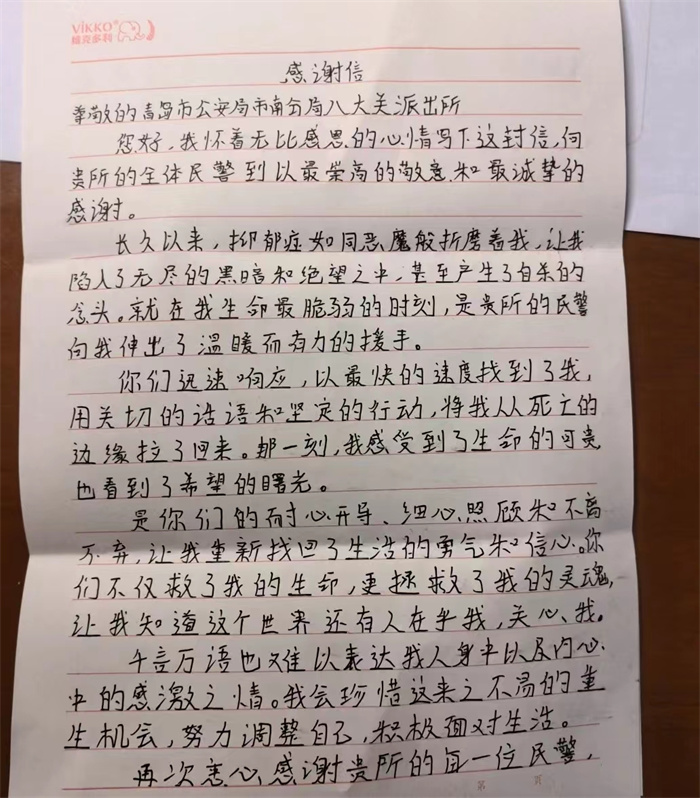 VIKKO®
威克多利
感谢信
尊敬的青岛市公安局市南分局八大关派出所
您好,我怀着无比感恩的心情写下这封信,向
贵所的全体民警到以最崇高的敬意和最诚挚的
感谢。
长久以来,抑郁症如同恶魔般折磨着我,让我
陷入了无尽的黑暗和绝望之中,甚至产生了自杀的
念头。就在我生命最脆弱的时刻,是贵所的民警
向我伸出了温暖而有力的援手。
你们迅速响应,以最快的速度找到了我,
用关切的话语和坚定的行动,将我从死亡的
边缘拉了回来。那一刻,我感受到了生命的可贵
也看到了希望的曙光。
是你们的耐心开导、细心照顾和不离
不弃,让我重新找回了生活的勇气和信心。你
们不仅救了我的生命,更拯救了我的灵魂,
让我知道这个世界还有人在乎我,关心我。
千言万语也难以表达我人身中以及内心
中的感激之情。我会珍惜这来之不易的重
生机会,努力调整自己,积极面对生活。
再次衷心感谢贵所的每一位民警,
第 页